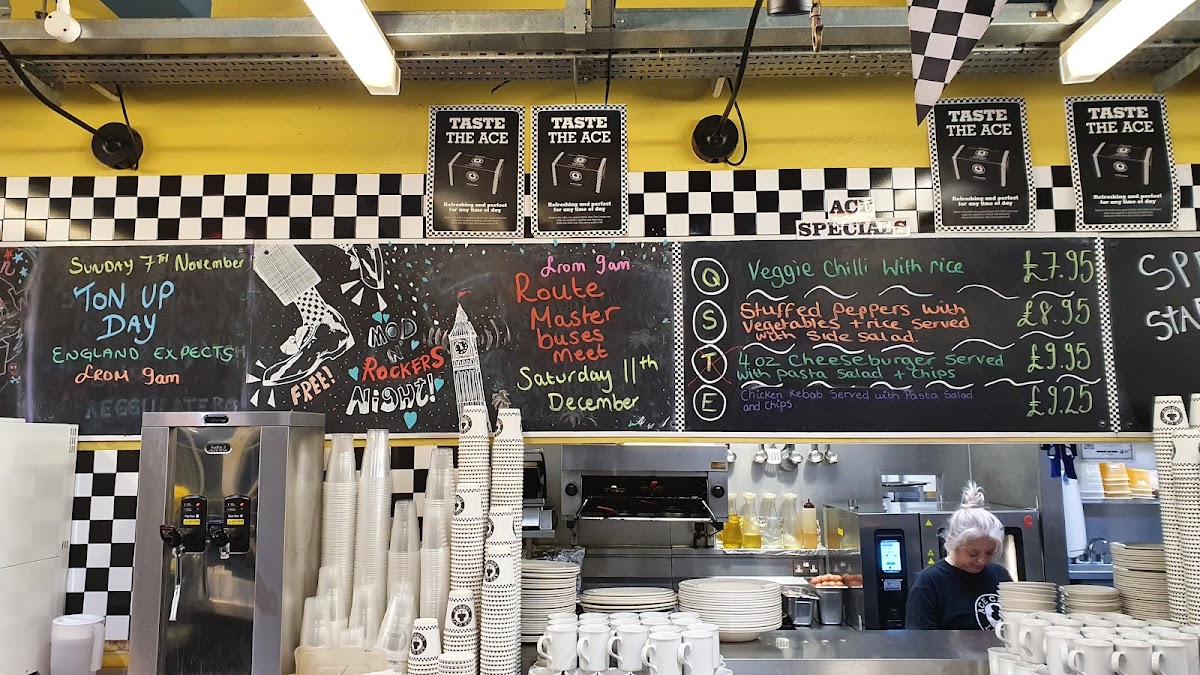 TASTE
THE ACE
Refreshing and perfect
for any time of day
TASTE
THE ACE
Refreshing and perfect
for any time of day
TASTE
THE ACE
Refreshing and perfect
for any time of day
TASTE
THE ACE
Refreshing and perfect
for any time of day
ACE
SPECIALS
SUNDAY 7TH November
TON UP
DAY
ENGLAND EXPECTS
from 9am
FREE!
MOD
N
ROCKERS
NIGHT!
from 9am
Route
Master
buses
meet
Saturday 11th
December
Q Veggie Chilli With rice £7.95
S Stuffed Peppers with
Vegetables + rice Served
with Side salad. £8.95
T 4 oz Cheeseburger Served
with Pasta Salad + Chips £9.95
E Chicken Kebab Served with Pasta Salad
and Chips £9.25